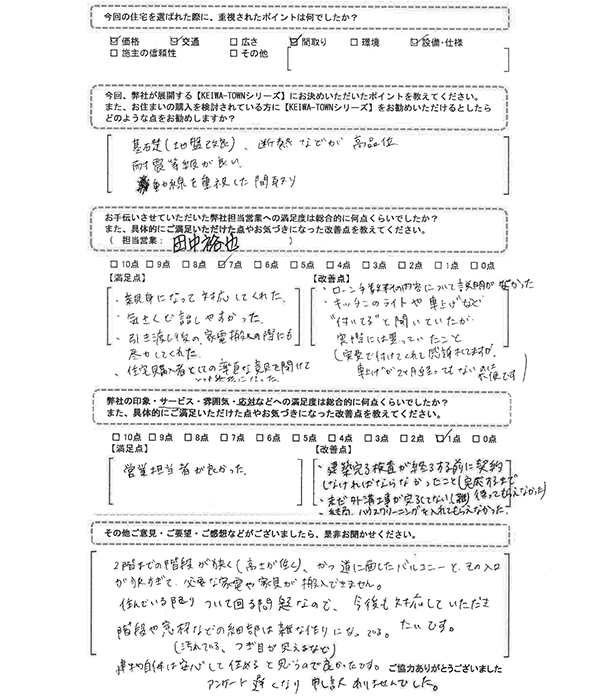 今回の住宅を選ばれた際に、重視されたポイントは何でしたか？
☑価格 ☑交通 □広さ ☑間取り □環境 ☑設備・仕様
□施主の信頼性 □その他
今回、弊社が展開する【KEIWA-TOWNシリーズ】にお決めいただいたポイントを教えてください。
また、お住まいの購入を検討されている方に【KEIWA-TOWNシリーズ】をお勧めいただけるとしたら
どのような点をお勧めしますか？
基礎(地盤改良)、断熱などが高品位
耐震等級が良い
動線を重視した間取り
お手伝いさせていただいた弊社担当営業への満足度は総合的に何点くらいでしたか？
また、具体的にご満足いただけた点やお気づきになった改善点を教えてください。
( 担当営業： 田中裕也 )
□10点 □9点 □8点 ☑7点 □6点 □5点 □4点 □3点 □2点 □1点 □0点
【満足点】
・親身になって対応してくれた。
・気さくで話しやすかった。
・引き渡し後の家電搬入の際にも
尽力してくれた。
・住宅購入者としての率直な意見を聞けて
【改善点】
・ローン手数料の内容について説明が無かった
・キッチンのライトや車上げなど
"付いてる"と聞いていたが
実際には異っていたこと
(実費で付けてくれ感謝してますが、
弊社の印象・サービス・雰囲気・応対などへの満足度は総合的に何点くらいでしたか？
また、具体的にご満足いただけた点やお気づきになった改善点を教えてください。
□10点 □9点 □8点 □7点 □6点 □5点 □4点 □3点 □2点 ☑1点 □0点
【満足点】
営業担当者が良かった。
【改善点】
・建築完了検査が終了する前に契約
しなければならなかったこと(完成するまで
・未だ外溝工事が完了してない(雑) 待ってもらえなかった)
・結局、ハウスクリーニングを入れてもらえなかった。
その他ご意見・ご要望・ご感想などがございましたら、是非お聞かせください。
2階までの階段が狭く(高さが低く)、かつ道に面したバルコニーと、その入口
が狭すぎて、必要な家電や家具が搬入できません。
住んでいる限りついて回る問題なので、今後も対応していただき
たいです。
階段や窓枠などの細部は雑な作りになっている。
(汚れている、つぎ目が見えるなど)
建物自体は安心して住めると思うので良かったです。
ご協力ありがとうございました
アンケート遅くなり申し訳ありませんでした。